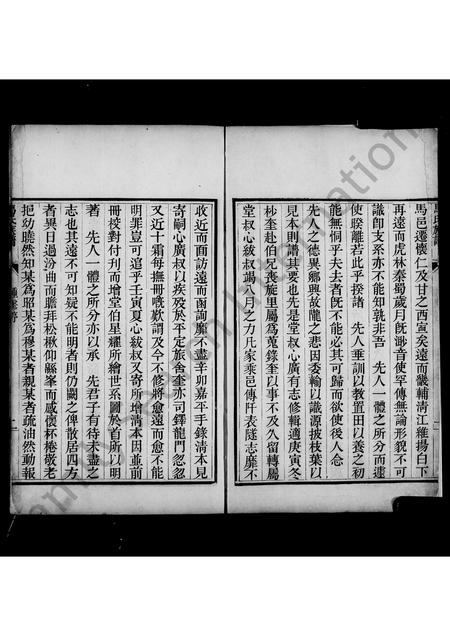 馬邑遷懷仁及甘之西宣矣遠而畿輔清江維揚白下
再遠而虎林秦蜀歲月旣渺音使罕傳無論形貌不可
識卽支系亦不能知孰非吾　先人一體之所分而遽
使睽離若此乎揆諸　先人垂訓以教置田以養之初
能無恫乎夫去者旣不能必其可歸而欲使後人念
先人之德異鄉興故隴之悲因委輸以識源披枝葉以
見本則譜其要也先是堂叔心廣有志修輯適庚寅冬
杪奎赴伯兄喪旋里屬爲蒐錄奎以事不及久留轉屬
堂叔心紱叔二
收近而面訪遠而函詢靡不盡辛卯嘉平手錄清本見
寄嗣心廣叔以疾歿於平定旅舍奎亦司鐸龍門忽忽
又近十霜每撫冊嘅歎謂及今不修將愈遠而愈不能
明罪豈可逭乎壬寅夏心紱叔又寄所增清本因並前
冊校對付刋而增堂伯星耀所繪世系圖於首所以明
著　先人一體之所分亦以承　先君子有待未盡之
志也其遠不可知疑不能明者則仍闕之俾散居四方
者異日過汾曲而瞻拜松楸仰緜峯而感懷杯棬敬老
把幼曉然知某爲昭某爲穆某者親某者疏油然動報